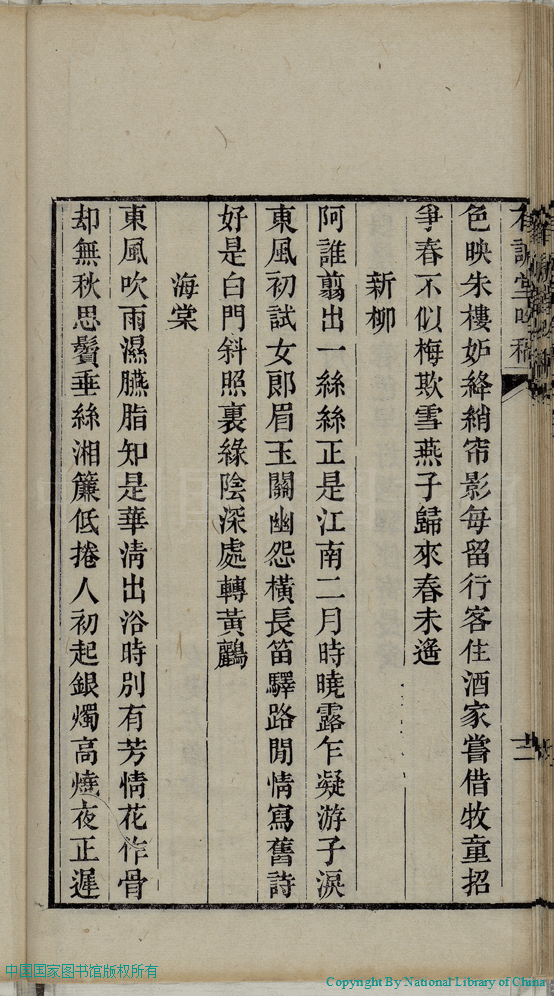 色映朱樓妒絳綃帘影每留行客住酒家嘗借牧童招
爭春不似梅欺雪燕子歸來春未遙
新柳
阿誰翦出一絲絲正是江南二月時曉露乍凝游子淚
東風初試女郎眉玉關幽怨橫長笛驛路閒情寫舊詩
好是白門斜照裏綠陰深處轉黃鸝
海棠
東風吹雨濕臙脂知是華淸出浴時別有芳情花作骨
却無秋思鬢垂絲湘簾低捲人初起銀燭高燒夜正遲
中国国家图书馆版权所有
Copyright By National Library of China